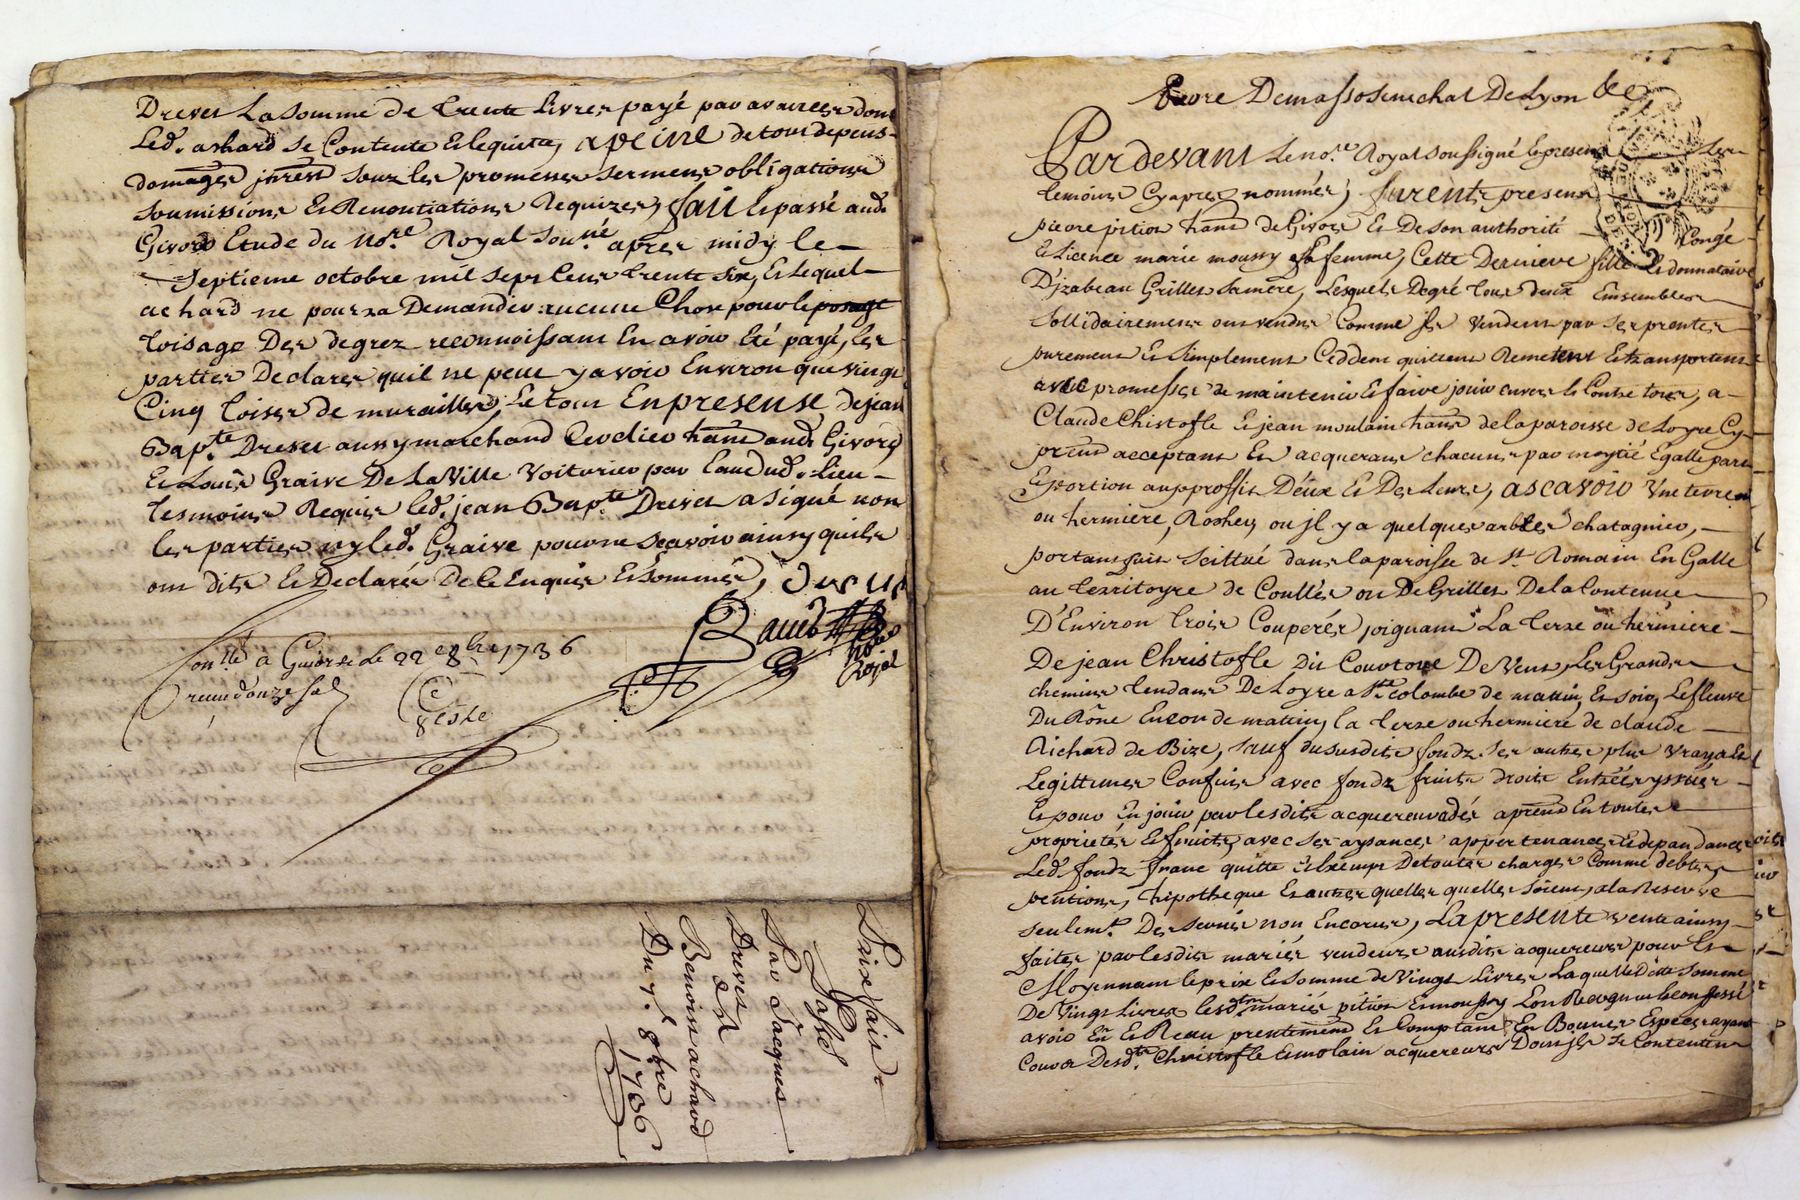 Drevet La somme de trente Livres payé par avances dont
Led. achard se Contente Et lequite, a peine de tous depens
domages jnrest sous les promesses sermens obligations
soumissions Et Renontiations Requizes, fait Et passé aud.
Givors Etude du Nore. Royal sousné. apres midy le
septieme octobre mil sept cent trente six, Et lequel
achard ne pourra Demander aucune Chose pour le
toisage Des degrez reconnoissant En avoir Eté payé, les
parties Declarer quil ne peut y avoir Environ que vingt
Cinq toises de murailles, Le tout En presense de jean
Bapte. Drevet aussy marchand hant. aud. Givors
Et Louis Graive De la Ville Voiturier par Eau dud. Lieu
tesmoins Requis led. jean Bapte. Drevet a signé non
les parties ny led. Graive pour ne sçavoir ainsy quils
ont dits Et Declarés De ce Enquis Et sommés,
Conllé a Givors le 22 8bre 1736
receu douze sols
Royal
Prixfait
Passé
Par Jacques
Drevet
a
Benoist achard
Du 7e. 8bre
1736
Demasso senechal De Lyon &c
Pardevant Le nore. Royal soussigné Et presens Les
temoins Cy apres nommés, furent presens
pierre pition hant. de Givors Et De son authorité Congé
Et Licence marie moussy sa femme, Cette Derniere fille Et donnataire
D'jzabeau Grillet sa mere, Lesquels De gré tous deux Ensembles
sollidairement ont vendus Comme ils Vendent par ses prentes
purement Et Simplement Ceddent quittent Remettent Et transportent
avec promesses de maintenir Et faire jouir envers Et Contre tous, a
Claude Christofle Et jean moulain hans. de la paroisse de Loyre Cy
prens. acceptans Et acquerans chacuns par moytié Egalle part
Et portion aux proffit D'eux Et Des Leurs, ascavoir Une terre
ou hermiere, Rochers ou jl y a quelques arbres chatagnier,
portans fait scittué dans la paroisse de St. Romain En Galle
au territoyre de Coullés ou De Grillet De la Contenue
D'Environ trois Couperés joignant La terre ou hermiere
De jean Christofle Dit Courtoue De Vent, Les Grands
chemins tendans De Loyre a Ste. colombe de matin Et soir, Le fleuve
Du Rône Encor de matin, la terre ou hermiere de claude
Richard de Bize, sauf dususdits fondz ses autres plus vrays Et
Legittimes Confins avec fondz fruits droits Entrées yssues
Et pour En jouir par lesdits acquereurs dés aprent En toutes
proprietés Et fruits, avec ses aysances appertenances Et dependances
Led. fondz franc quitte Et Exempt De toutes charges Comme debtes
pentions, hipotheque Et autres quelles quelles soient, a la Reserve
seulemt. Des servis non Encorus, La presente vente ainsy
faites par lesdits mariés vendeurs ausdits acquereurs pour Et
Moyennant le prix Et somme de Vingt Livres Laquelle Ditte somme
De Vingt Livres lesdts. mariés pition Et moussy L'on Recognu Et confessé
avoir Eu Et Receu prentement Et Comptant En Bonnes Especes ayant
Cours Desdts. Christofle Et molain acquereurs Dont jls se Contentent